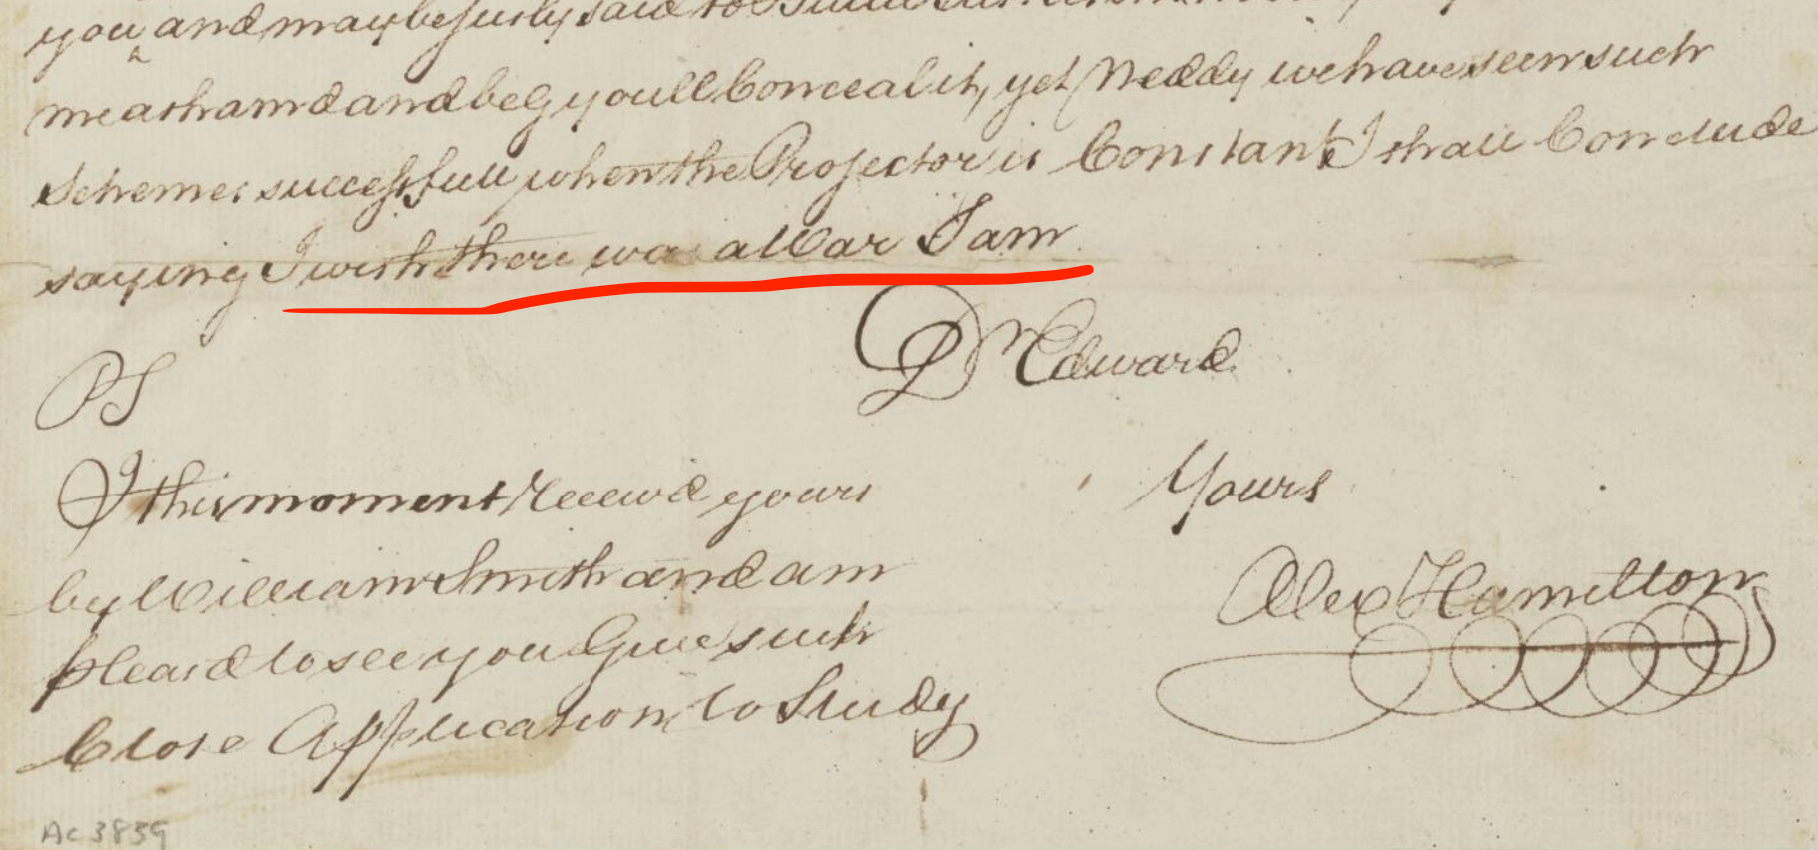 you and may be justly said to
me asham'd and beg youll Conceal it, yet Neddy we have seen such
Schemes successfull when the Projector is Constant I shall Conclude
saying I wish there was a War I am
Dr Edward
PS
Yours
I this moment receivd yours
by William Smith and am
Alex Hamilton
pleasd to see you Give such
Close Application to Study
Ac 3839